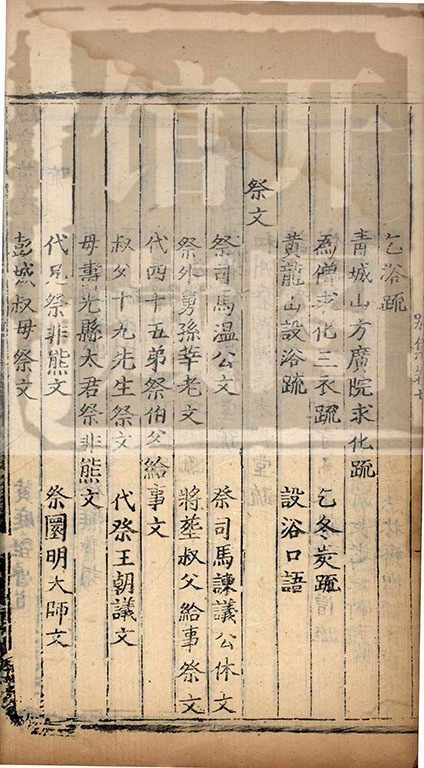 乞浴疏
青城山方廣院求化疏
為僧求化三衣疏 乞冬炭疏
黃龍山設浴疏 設浴口語
祭文
祭司馬溫公文 祭司馬諫議公休文
祭外舅孫莘老文 將塟叔父給事祭文
代四十五弟祭伯父給事文
叔父十九先生祭文 代祭王朝議文
母壽光縣太君祭非熊文
代兄祭非熊文 祭圜明大師文
彭城叔母祭文